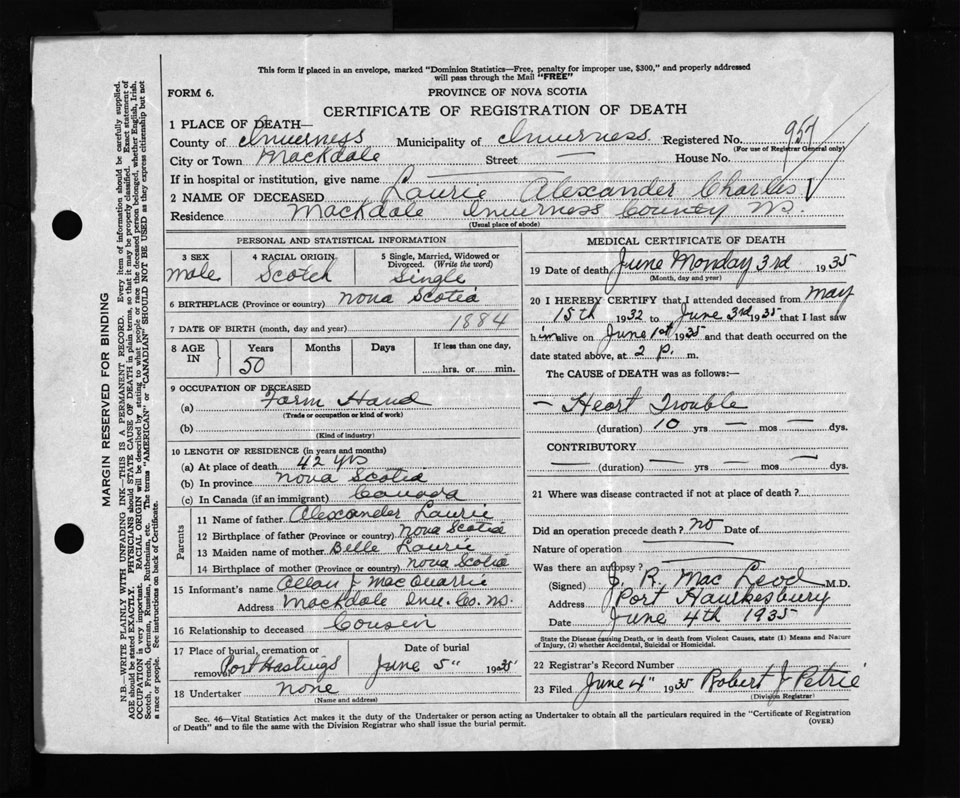 This form if placed in an envelope, marked "Dominion Statistics—Free, penalty for improper use, $300," and properly addressed
will pass through the Mail "FREE"
FORM 6.
PROVINCE OF NOVA SCOTIA
CERTIFICATE OF REGISTRATION OF DEATH
1 PLACE OF DEATH—
County of Inverness Municipality of Inverness Registered No. 957
(For use of Registrar General only)
City or Town Mackdale Street — House No.
If in hospital or institution, give name
2 NAME OF DECEASED Laurie Alexander Charles
Residence Mackdale Inverness County N.S.
(Usual place of abode)
PERSONAL AND STATISTICAL INFORMATION
3 SEX 4 RACIAL ORIGIN 5 Single, Married, Widowed or
Divorced. (Write the word)
male Scotch Single
6 BIRTHPLACE (Province or country) Nova Scotia
7 DATE OF BIRTH (month, day and year) 1884
8 AGE IN Years Months Days If less than one day,
50 hrs. or min.
9 OCCUPATION OF DECEASED
(a) Farm Hand
(Trade or occupation or kind of work)
(b)
(Kind of industry)
10 LENGTH OF RESIDENCE (in years and months)
(a) At place of death 42 yrs
(b) In province Nova Scotia
(c) In Canada (if an immigrant) Canada
Parents
11 Name of father Alexander Laurie
12 Birthplace of father (Province or country) Nova Scotia
13 Maiden name of mother Belle Laurie
14 Birthplace of mother (Province or country) Nova Scotia
15 Informant's name Allan J MacQuarrie
Address Mackdale Inv. Co. N.S.
16 Relationship to deceased Cousin
17 Place of burial, cremation or Date of burial
removal Port Hastings June 5" 1935
18 Undertaker none
(Name and address)
MEDICAL CERTIFICATE OF DEATH
19 Date of death June Monday 3rd 1935
(Month, day and year)
20 I HEREBY CERTIFY that I attended deceased from May
15th 1932 to June 3rd 1935 that I last saw
him alive on June 1st 1935 and that death occurred on the
date stated above, at 2 p. m.
The CAUSE of DEATH was as follows:—
— Heart Trouble
(duration) 10 yrs — mos — dys.
CONTRIBUTORY
(duration) — yrs — mos — dys.
21 Where was disease contracted if not at place of death?
Did an operation precede death? no Date of
Nature of operation
Was there an autopsy?
(Signed) J. R. MacLeod M.D.
Address Port Hawkesbury
Date June 4th 1935
State the Disease causing Death, or in death from Violent Causes, state (1) Means and Nature
of Injury, (2) whether Accidental, Suicidal or Homicidal.
22 Registrar's Record Number
23 Filed June 4" 1935 Robert J Petrie
(Division Registrar)
Sec. 46—Vital Statistics Act makes it the duty of the Undertaker or person acting as Undertaker to obtain all the particulars required in the "Certificate of Registration
of Death" and to file the same with the Division Registrar who shall issue the burial permit. (OVER)
MARGIN RESERVED FOR BINDING
N.B.—WRITE PLAINLY WITH UNFADING INK—THIS IS A PERMANENT RECORD. Every item of information should be carefully supplied.
AGE should be stated EXACTLY. PHYSICIANS should STATE CAUSE OF DEATH in plain terms, so that it may be properly classified. Exact statement of
OCCUPATION is very important. RACIAL ORIGIN will be described by stating to what people or race the deceased person belonged, whether English, Irish,
Scotch, French, German, Russian, Ruthenian, etc. The terms "AMERICAN" or "CANADIAN" SHOULD NOT BE USED as they express citizenship but not
a race or people. See instructions on back of Certificate.